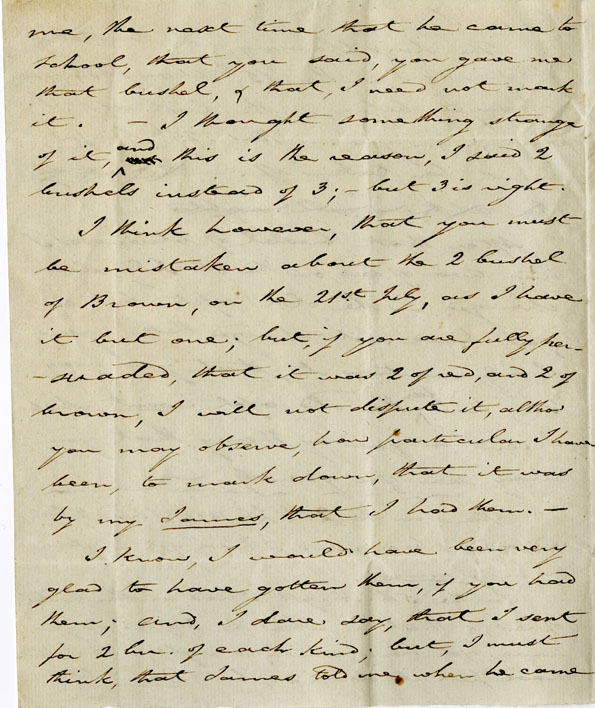 me, the next time that he came to
school, that you said, you gave me
that bushel, & that, I need not mark
it. – I thought something strange
of it, and this is the reason, I said 2
bushels instead of 3; – but 3 is right.
I think however, that you must
be mistaken about the 2 bushel
of Brown, on the 21st. July, as I have
it but one; but, if you are fully per-
-suaded, that it was 2 of red, and 2 of
brown, I will not dispute it, altho
you may observe, how particular I have
been, to mark down, that it was
by my James, that I had them. –
I know, I would have been very
glad to have gotten them, if you had
them; and, I dare say, that I sent
for 2 bu. of each kind; but, I must
think, that James told me, when he came